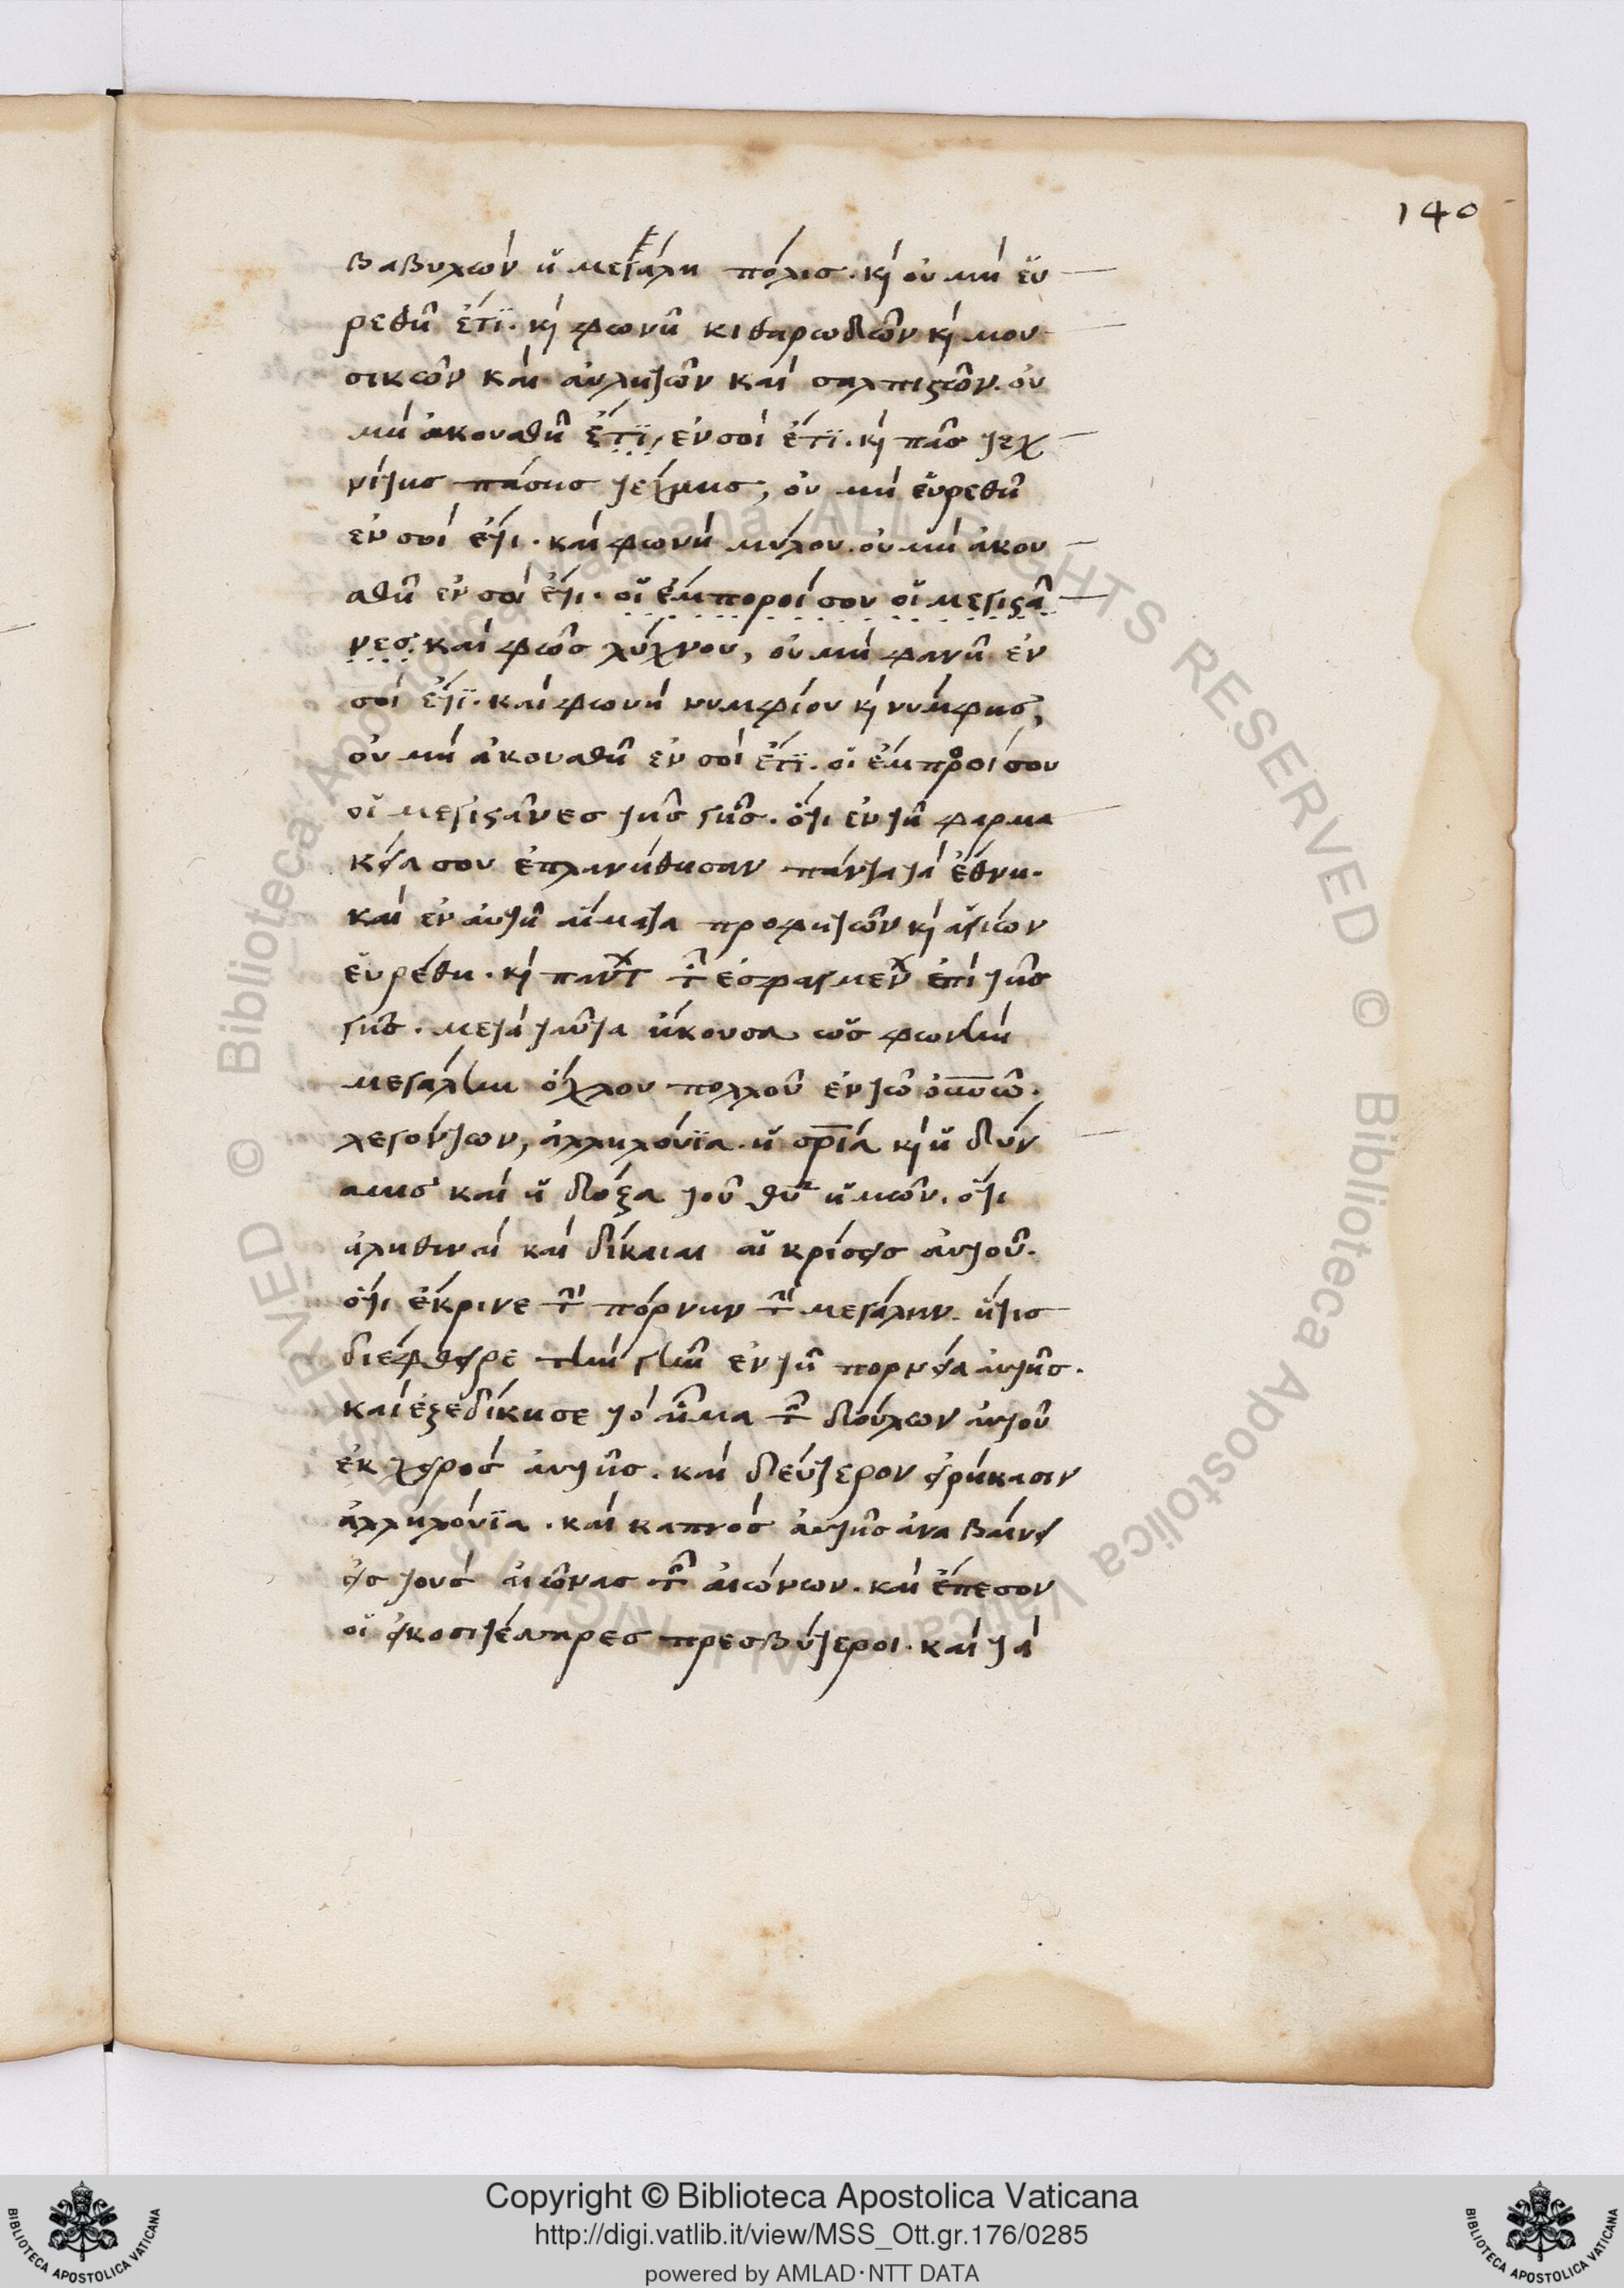 140
βαβυλὼν ἡ μεγάλη πόλισ. κ(αὶ) οὐ μὴ εὑ
ρεθῆ ἔτϊ. κ(αὶ) φωνὴ κιθαρωδῶν κ(αὶ) μου
σικῶν καὶ αὐλητῶν καὶ σαλπιστῶν. οὐ
μὴ ἀκουσθῆ ἔτϊ, ἐν σοὶ ἔτϊ. κ(αὶ) πᾶσ τεχ
νίτησ πάσησ τέχνησ, οὐ μὴ εὑρεθῆ
ἐν σοὶ ἔτι. καὶ φωνὴ μύλου. οὐ μὴ ἀκου
σθῆ ἐν σοὶ ἔτι. οἱ ἔμποροί σου οἱ μεγιστᾶ
νεσ. καὶ φῶσ λύχνου, οὐ μὴ φανῆ ἐν
σοὶ ἔτϊ. καὶ φωνὴ νυμφίου κ(αὶ) νύμφησ,
οὐ μὴ ἀκουσθῆ ἐν σοὶ ἔτϊ. οἱ ἔμποροί σου
οἱ μεγιστᾶνεσ τῆσ γῆσ. ὅτι ἐν τῆ φαρμα
κεία σου ἐπλανήθησαν πάντα τὰ ἔθνη.
καὶ ἐν αὐτῆ αἵματα προφητῶν κ(αὶ) ἁγίων
εὑρέθη. κ(αὶ) πάντ(ων) τ(ῶν) ἐσφαγμέν(ων) ἐπὶ τῆσ
γῆσ. μετὰ ταῦτα ἤκουσα ὡσ φωνὴν
μεγάλην ὄχλου πολλοῦ ἐν τῶ ου̅νω̅.
λεγόντων, ἀλληλούϊα. ἡ σρ̅ία κ(αὶ) ἡ δύν
αμισ καὶ ἡ δόξα τοῦ θυ̅ ἡμῶν. ὅτι
ἀληθιναὶ καὶ δίκαιαι αἱ κρίσεισ αὐτοῦ.
ὅτι ἔκρινε τ(ὴν) πόρνην τ(ὴν) μεγάλην. ἥτισ
διέφθειρε τὴν γῆν ἐν τῆ πορνεία αὐτῆσ.
καὶ ἐξεδίκησε τὸ αἷμα τ(ῶν) δούλων αὐτοῦ
ἐκ χειρὸσ αὐτῆσ. καὶ δεύτερον εἰρήκασιν
ἀλληλούϊα. καὶ καπνὸσ αὐτῆσ ἀναβαίνει
εἰσ τοὺσ αἰῶνασ τ(ῶν) αἰώνων. καὶ ἔπεσον
οἱ εἰκοσιτέσσαρεσ πρεσβύτεροι. καὶ τὰ
Copyright © Biblioteca Apostolica Vaticana
http://digi.vatlib.it/view/MSS_Ott.gr.176/0285
powered by AMLAD·NTT DATA
BIBLIOTECA APOSTOLICA VATICANA
BIBLIOTECA APOSTOLICA VATICANA
© Biblioteca Apostolica Vaticana ALL RIGHTS RESERVED © Biblioteca Apostolica Vaticana ALL RIGHTS RESERVED